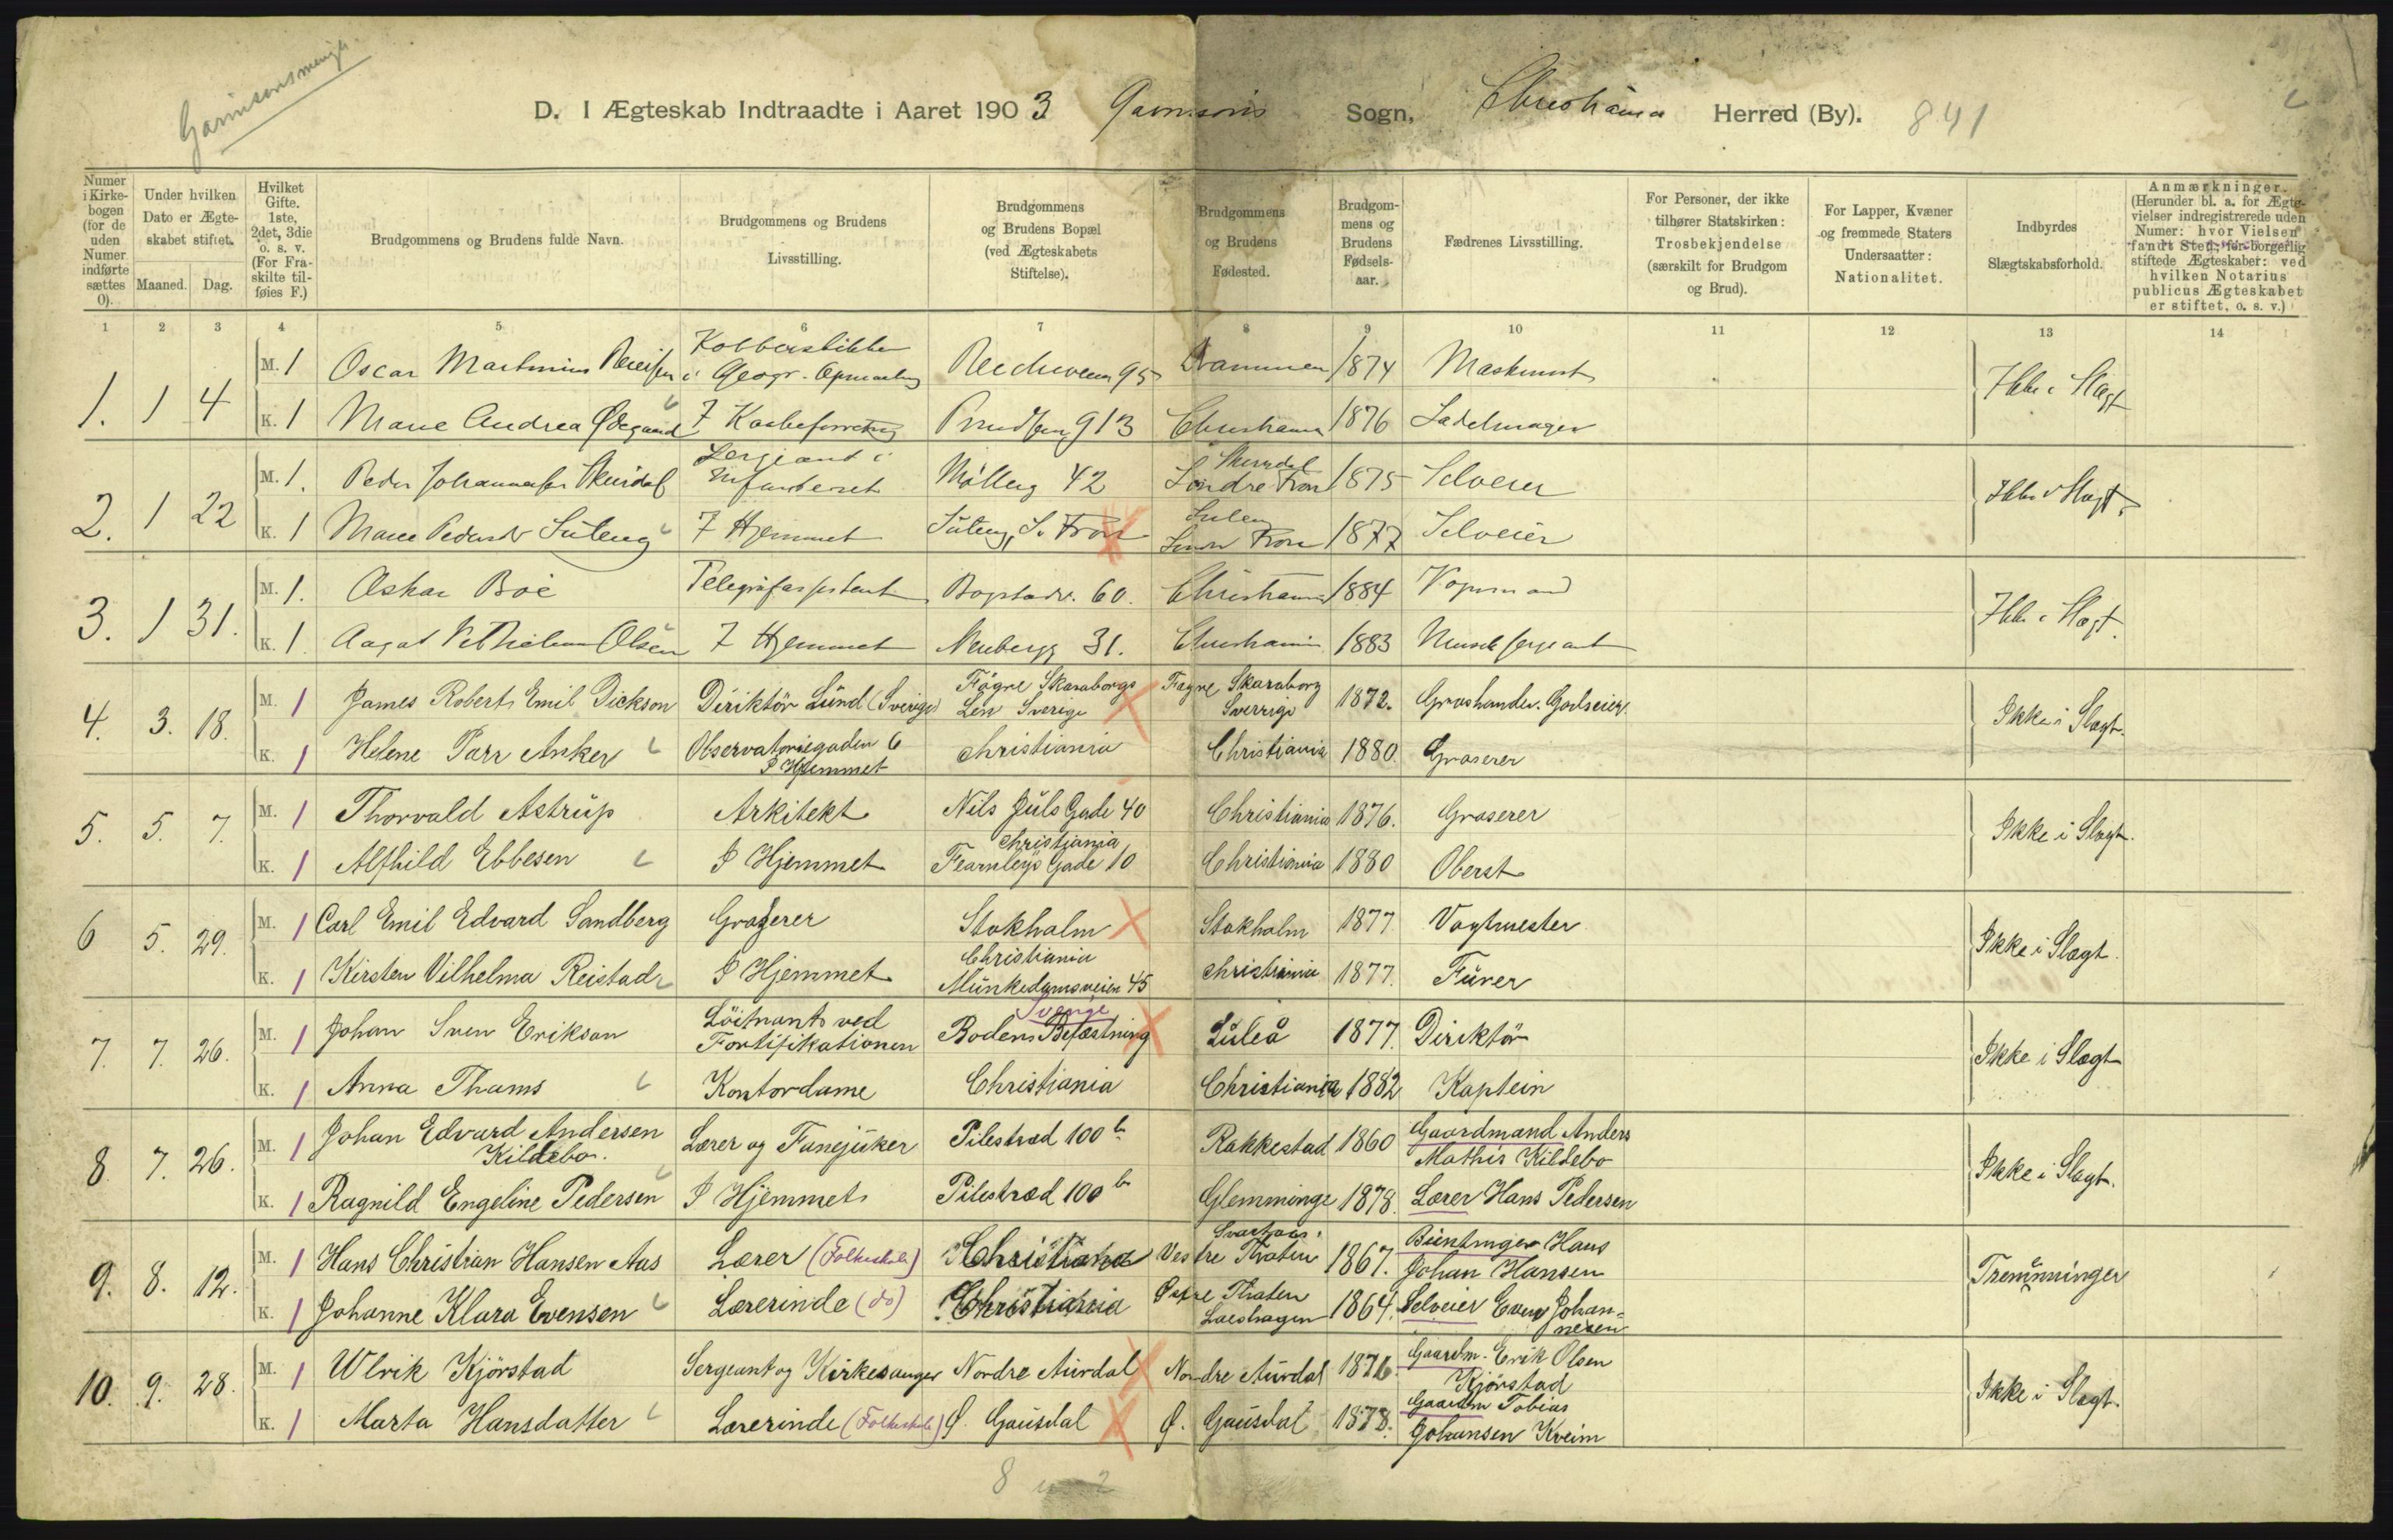 Garnisonsmenigh.
D. I Ægteskab Indtraadte i Aaret 1903 Garnisons Sogn, Christiania Herred (By). 841
Numer i Kirke-bogen (for de uden Numer indførte sættes 0).
Under hvilken Dato er Ægte-skabet stiftet.
Maaned. Dag.
Hvilket Gifte. 1ste, 2det, 3die o. s. v. (For Fra-skilte til-føies F.)
Brudgommens og Brudens fulde Navn.
Brudgommens og Brudens Livsstilling.
Brudgommens og Brudens Bopæl (ved Ægteskabets Stiftelse).
Brudgommens og Brudens Fødested.
Brudgom-mens og Brudens Fødsels-aar.
Fædrenes Livsstilling.
For Personer, der ikke tilhører Statskirken: Trosbekjendelse (særskilt for Brudgom og Brud).
For Lapper, Kvæner og fremmede Staters Undersaatter: Nationalitet.
Indbyrdes Slægtskabsforhold.
Anmærkninger. (Herunder bl. a. for Ægte-vielser indregistrerede uden Numer: hvor Vielsen fandt Sted; for borgerlig stiftede Ægteskaber: ved hvilken Notarius publicus Ægteskabet er stiftet, o. s. v.)
1 2 3 4 5 6 7 8 9 10 11 12 13 14
1. 1 4
M. 1 Oscar Martinius Kobberstikker i Geogr. Opmaaling 95 Drammen 1874 Maskinist
Ikke i Slægt
K. 1 Marie Andrea Ødegaard 13 Christiania 1876 Sadelmager
2. 1 22
M. 1. Peder Johannessen Skurdal Sergeant i Infanteriet Møllerg 42 Skurdal Søndre Fron 1875 Selveier
Ikke i Slægt
K. 1 Marie Pedersdr Suleng I Hjemmet Suleng, S. Fron Suleng Søndre Fron 1877 Selveier
3. 1 31.
M. 1. Oskar Boe Telegrafassistent Bogstadv. 60. Christiania 1884 Vognmand
Ikke i Slægt.
K. 1. Aagot Vilhelmine Olsen I Hjemmet Neubergg 31. Christiania 1883 Musiksergeant
4. 3. 18.
M. 1 James Robert Emil Dickson Diriktör Lund (Sverige) Fägre Skaraborgs Len Sverige Fagre Skaraborg Sverrige 1872. Groshandler. Godseier.
Ikke i Slægt.
K. 1 Helene Parr Anker Observatoriegaden 6 I Hjemmet Christiania Christiania 1880. Groserer
5. 5. 7.
M. 1 Thorvald Astrup Arkitekt Nils Juls Gade 40 Christiania 1876. Groserer
Ikke i Slægt.
K. 1 Alfhild Ebbesen I Hjemmet Christiania Fearnleys Gade 10 Christiania 1880 Oberst
6 5. 29.
M. 1 Carl Emil Edvard Sandberg Groserer Stokholm Stokholm 1877 Vagtmester
Ikke i Slægt.
K. 1 Kirsten Vilhelma Reistad I Hjemmet Christiania Munkedamsveien 45 Christiania 1877. Furer
7. 7. 26.
M. 1 Johan Sven Erikson Löitnant ved Fortifikationen Sverige Bodens Befæstning Luleå 1877. Diriktör
Ikke i Slægt
K. 1 Anna Thams Kontordame Christiania Christiania 1882 Kaptein
8 7. 26.
M. 1 Johan Edvard Andersen Kildebo. Lærer og Fanejunker Pilestræd 100 b Rakkestad 1860 Gaardmand Anders Mathis Kildebo
Ikke i Slægt.
K. 1 Ragnild Engeline Pedersen I Hjemmet Pilestræd 100 b Glemminge 1878. Lærer Hans Pedersen
9. 8. 12.
M. 1 Hans Christian Hansen Aas Lærer (Folkeskole) Christiania Vestre Thoten 1867. Hans Johan Hansen
Tremenninger
K. 1 Johanne Klara Evensen Lærerinde (do) Christiania Thoten 1864. Selveier Even Johan=nesen
10. 9. 28.
M. 1 Ulrik Kjörstad Sergeant og Kirkesanger Nordre Aurdal Nordre Aurdal 1876. Gaardm. Erik Olsen Kjörstad
Ikke i Slægt.
K. 1 Marta Hansdatter Lærerinde (Folkeskole) Ø. Gausdal Ø. Gausdal 1878. Gaardm Tobias Johansen Kveim
8 2